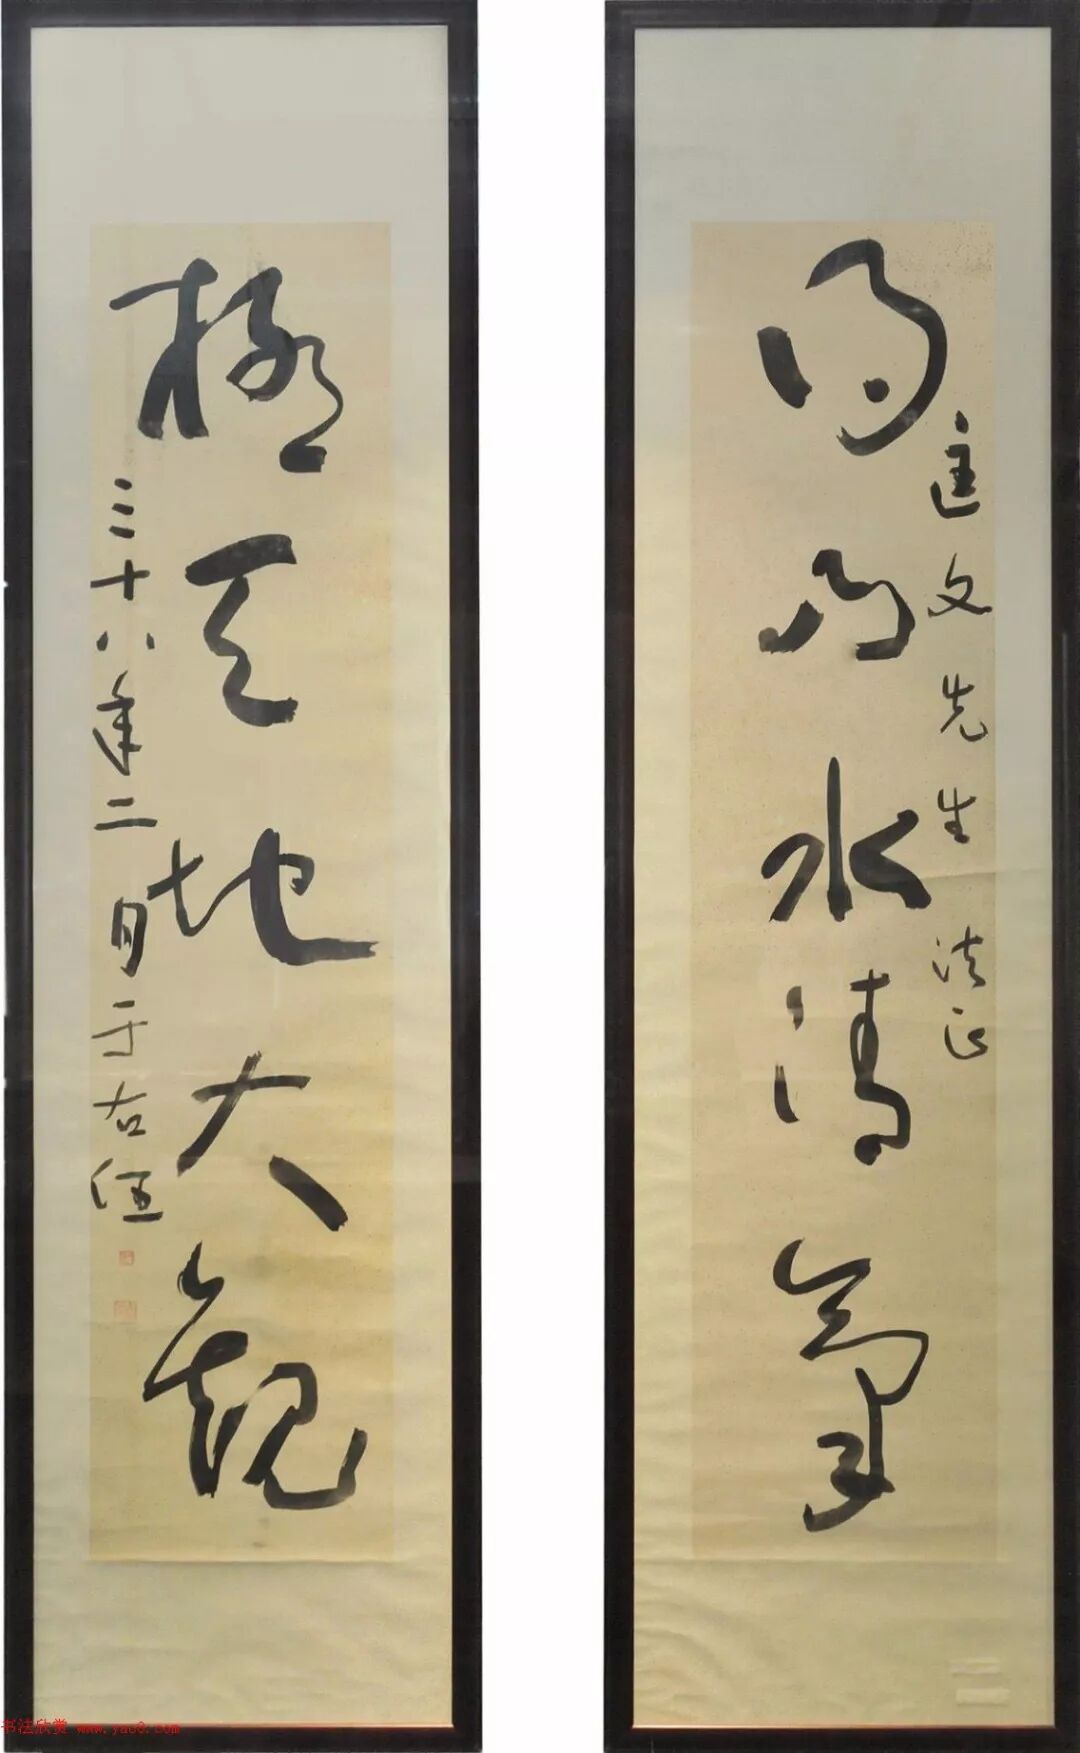 得山水清氣
匡文先生法正
極天地大觀
三十八年二月于右任
书法欣赏 www.yac8.com